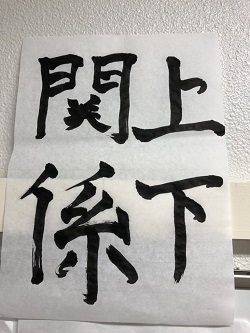 上下
関係